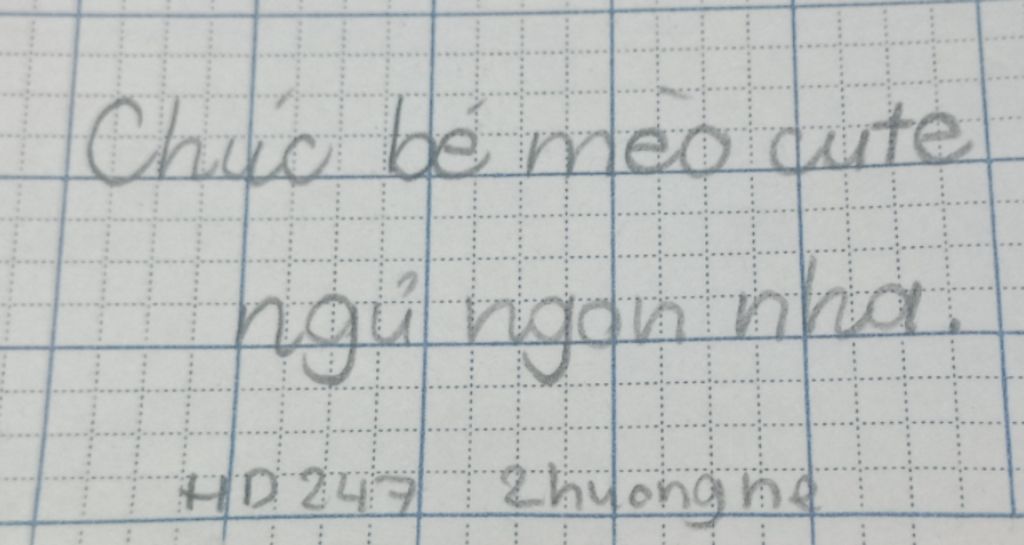 Chúc bé mèo cute
ngủ ngon nha.
HD 247 2hyongne